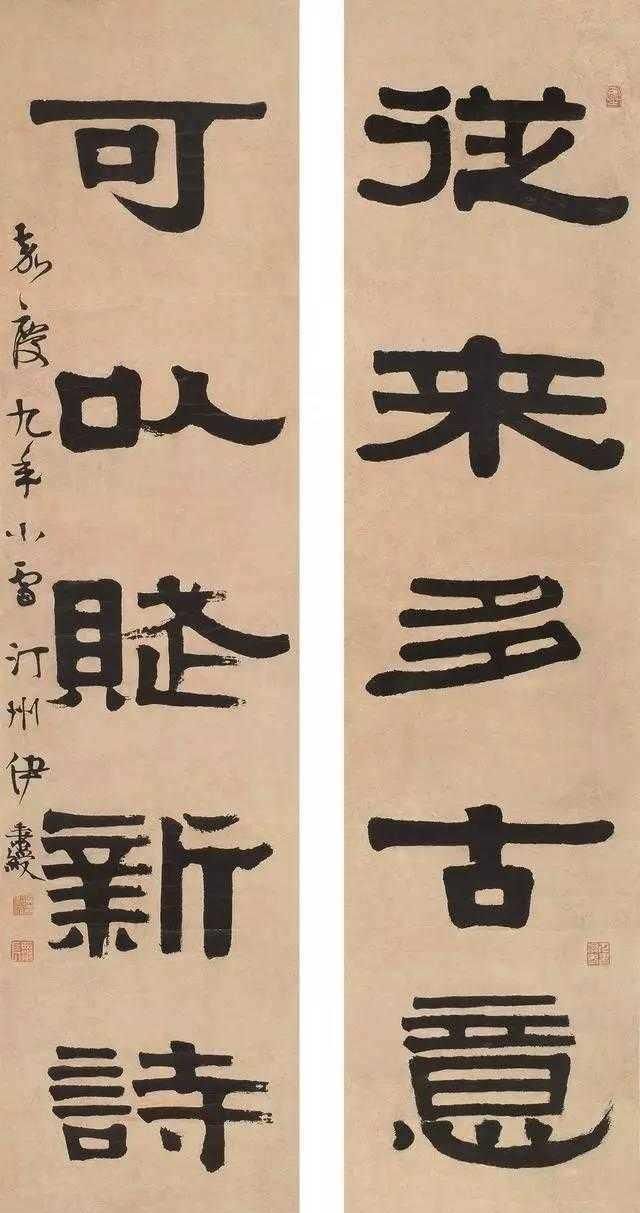 從来多古意
可以賦新詩
嘉慶九年小雪汀州伊秉綬